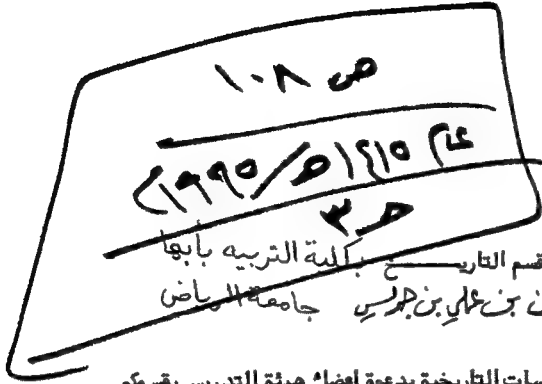 ص ١٠٨
عام ١٤١٥هـ/١٩٩٥م
حـ ٣
قسم التاريـــــــخ بكلية التربيه بأبها
بن علي بن جريس جامعة الرياض
التاريخية بدعوة اعضاء هيئة التدريس بقسمكم